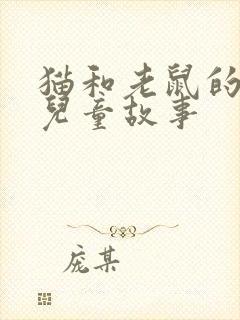 猫和老鼠的
兒童故事
庞某